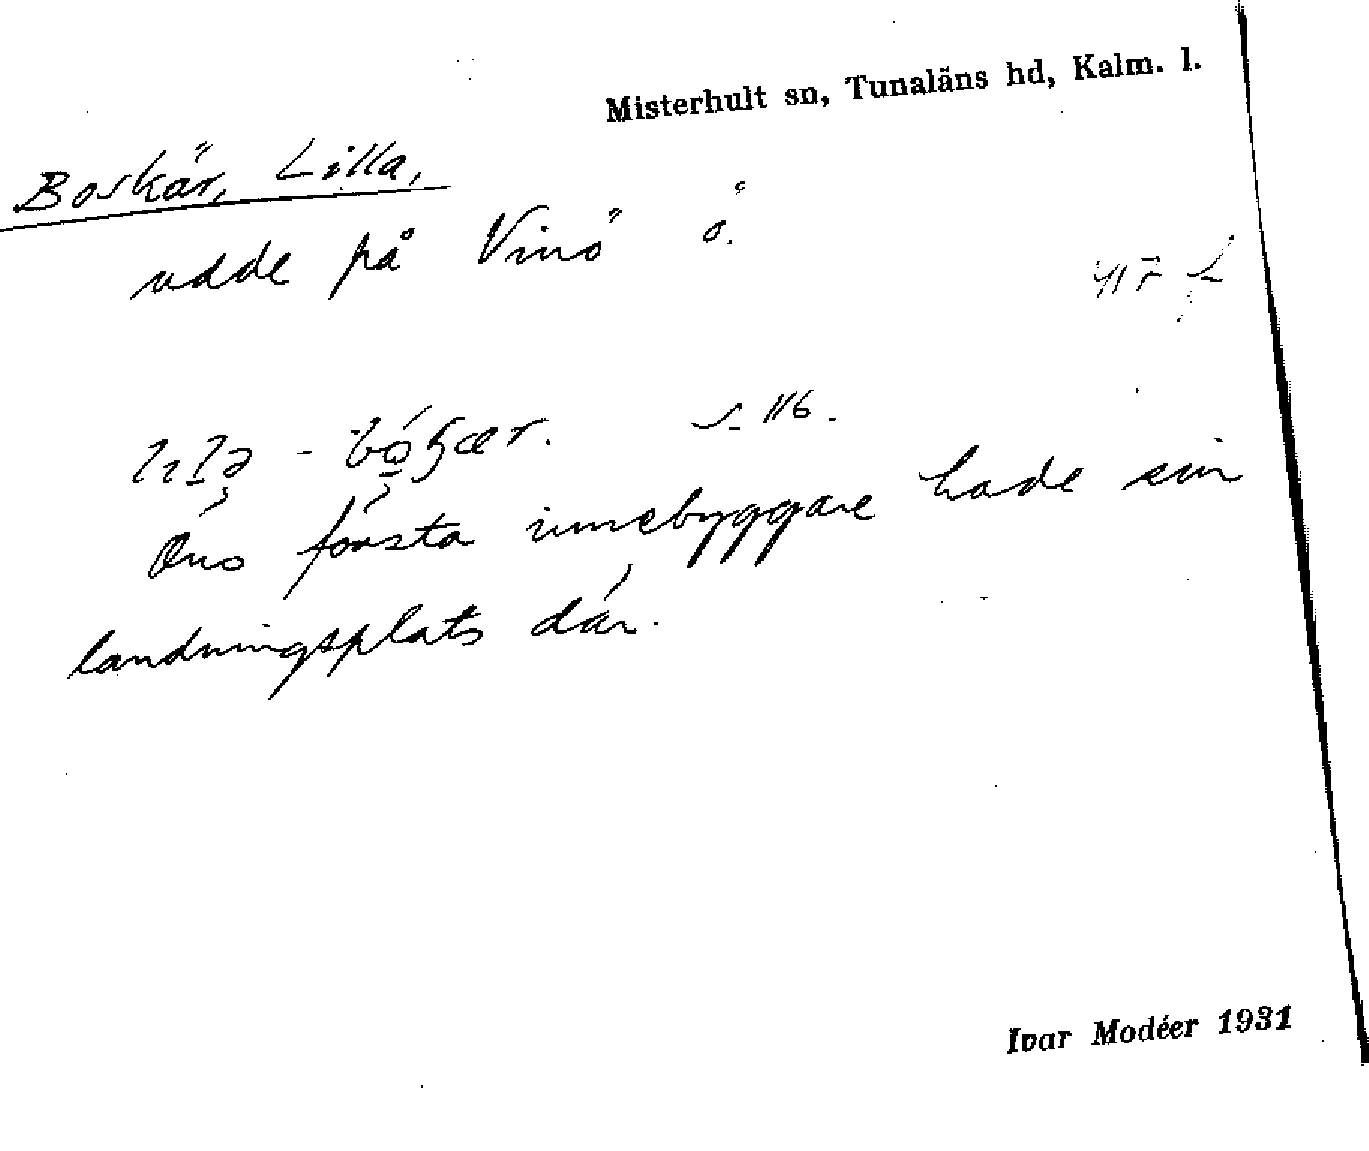 Misterhult sn, Tunaläns hd, Kalm. l.
Boskär, Lilla,
udde på Vinö ö.
s. 116.
Öns första innebyggare hade sin
landningsplats där.
Ivar Modéer 1931